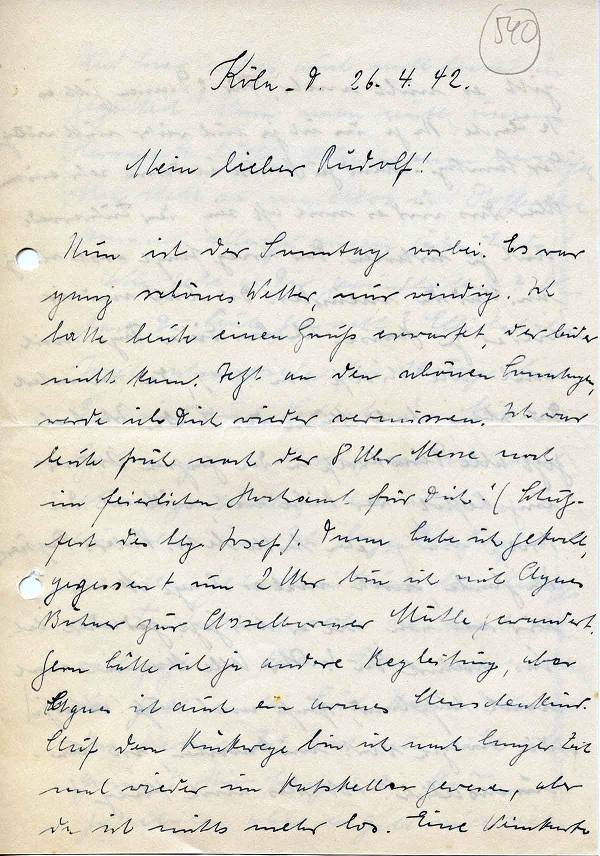 540
Köln-D. 26.4.42.
Mein lieber Rudolf!
Nun ist der Sonntag vorbei. Es war
ganz schönes Wetter, nur windig. Ich
hatte heute einen Gruß erwartet, der leider
nicht kam. Jetzt an den schönen Sonntagen,
werde ich Dich wieder vermissen. Ich war
heute früh nach der 8 Uhr Messe noch
im feierlichen Hochamt für Dich! (Schutz-
fest des hlg. Josef). Dann habe ich gekocht,
gegessen + um 2 Uhr bin ich mit Agnes
zur Mühle gewandert.
Gern hätte ich ja andere Begleitung, aber
Agnes ist auch ein armes Menschenkind.
Auf dem Rückwege bin ich nach langer Zeit
mal wieder im Ratskeller gewesen, aber
da ist nichts mehr los. Eine